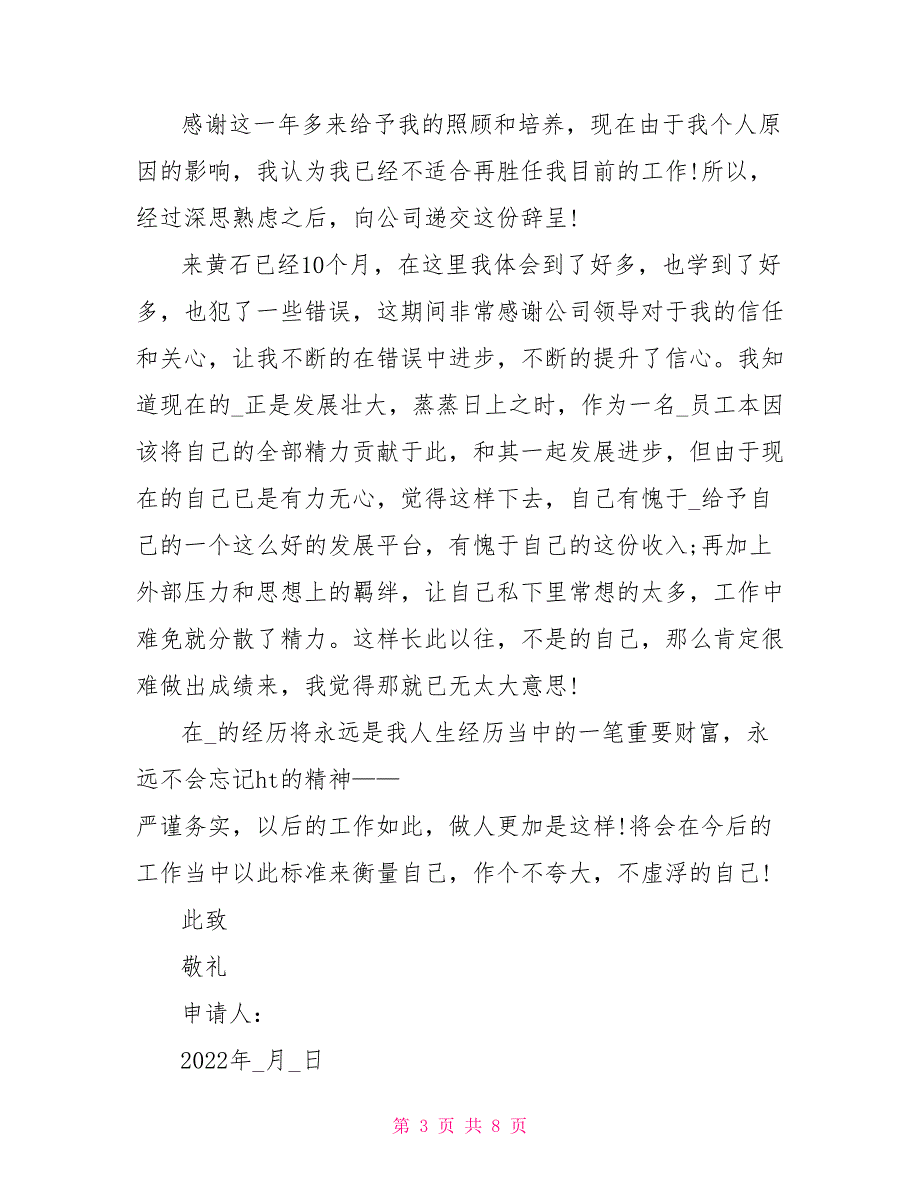 感谢这一年多来给予我的照顾和培养，现在由于我个人原
因的影响，我认为我已经不适合再胜任我目前的工作!所以，
经过深思熟虑之后，向公司递交这份辞呈!
来黄石已经10个月，在这里我体会到了好多，也学到了好
多，也犯了一些错误，这期间非常感谢公司领导对于我的信任
和关心，让我不断的在错误中进步，不断的提升了信心。我知
道现在的_正是发展壮大，蒸蒸日上之时，作为一名_员工本因
该将自己的全部精力贡献于此，和其一起发展进步，但由于现
在的自己已是有力无心，觉得这样下去，自己有愧于_给予自
己的一个这么好的发展平台，有愧于自己的这份收入;再加上
外部压力和思想上的羁绊，让自己私下里常想的太多，工作中
难免就分散了精力。这样长此以往，不是的自己，那么肯定很
难做出成绩来，我觉得那就已无太大意思!
在_的经历将永远是我人生经历当中的一笔重要财富，永
远不会忘记ht的精神——
严谨务实，以后的工作如此，做人更加是这样!将会在今后的
工作当中以此标准来衡量自己，作个不夸大，不虚浮的自己!
此致
敬礼
申请人：
2022年_月_日
第 3 页 共 8 页